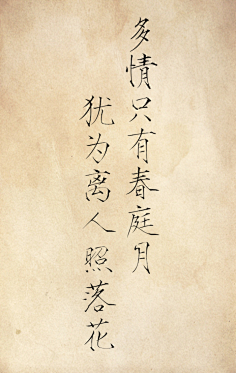 多情只有春庭月
犹为离人照落花